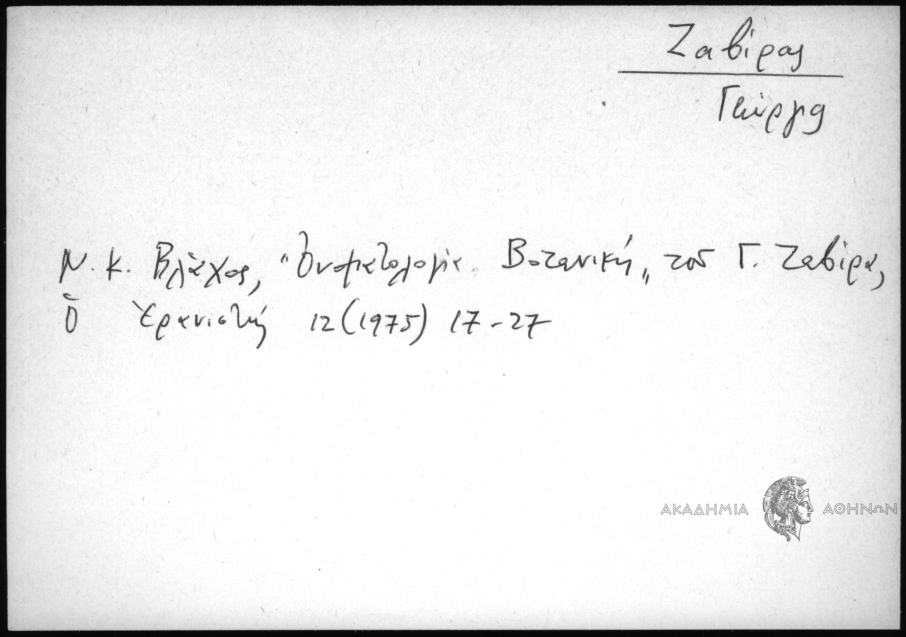 Ζαβίρας
Γεώργης
Ν. Κ. Βλάχος, "Ὀνοματολογία Βοτανική" τοῦ Γ. Ζαβίρα,
Ὁ Ἐρανιστής 12 (1975) 17-27
ΑΚΑΔΗΜΙΑ ΑΘΗΝΩΝ